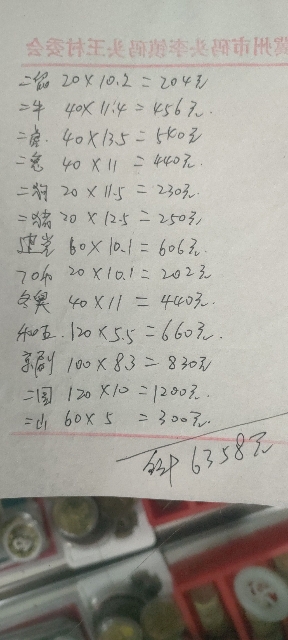 冀州市码头李镇码头王村委会
二鼠 20×10.2=204元
二牛 40×11.4=456元
二虎. 40×13.5=540元
二兔 40×11=440元.
二狗 20×11.5=230元
二猪 20×12.5=250元
建党 60×10.1=606元
70和 20×10.1=202元
冬奥 40×11=440元
和五.120×5.5=660元
京剧 100×8.3=830元
二国 120×10=1200元.
二山 60×5=300元.
合计 6358元